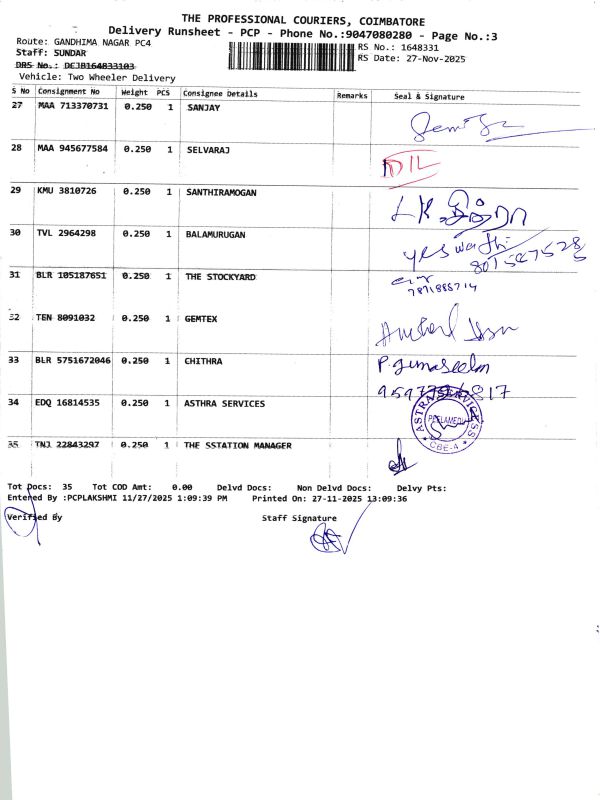 THE PROFESSIONAL COURIERS, COIMBATORE
Delivery Runsheet - PCP - Phone No.:9047080280 - Page No.:3
Route: GANDHIMA NAGAR PC4
RS No.: 1648331
Staff: SUNDAR
RS Date: 27-Nov-2025
DRS No.: DEJB164833103
Vehicle: Two Wheeler Delivery
S No Consignment No Weight PCS Consignee Details Remarks Seal & Signature
27 MAA 713370731 0.250 1 SANJAY
28 MAA 945677584 0.250 1 SELVARAJ
29 KMU 3810726 0.250 1 SANTHIRAMOGAN
30 TVL 2964298 0.250 1 BALAMURUGAN
yeswadhi
31 BLR 105187651 0.250 1 THE STOCKYARD
32 TEN 8091032 0.250 1 GEMTEX
33 BLR 5751672046 0.250 1 CHITHRA
34 EDQ 16814535 0.250 1 ASTHRA SERVICES
ASTRA SERVICES
PEELAMEDU
CBE-4
35 TNJ 22843297 0.250 1 THE SSTATION MANAGER
Tot Docs: 35 Tot COD Amt: 0.00 Delvd Docs: Non Delvd Docs: Delvy Pts:
Entered By :PCPLAKSHMI 11/27/2025 1:09:39 PM Printed On: 27-11-2025 13:09:36
Verified By Staff Signature